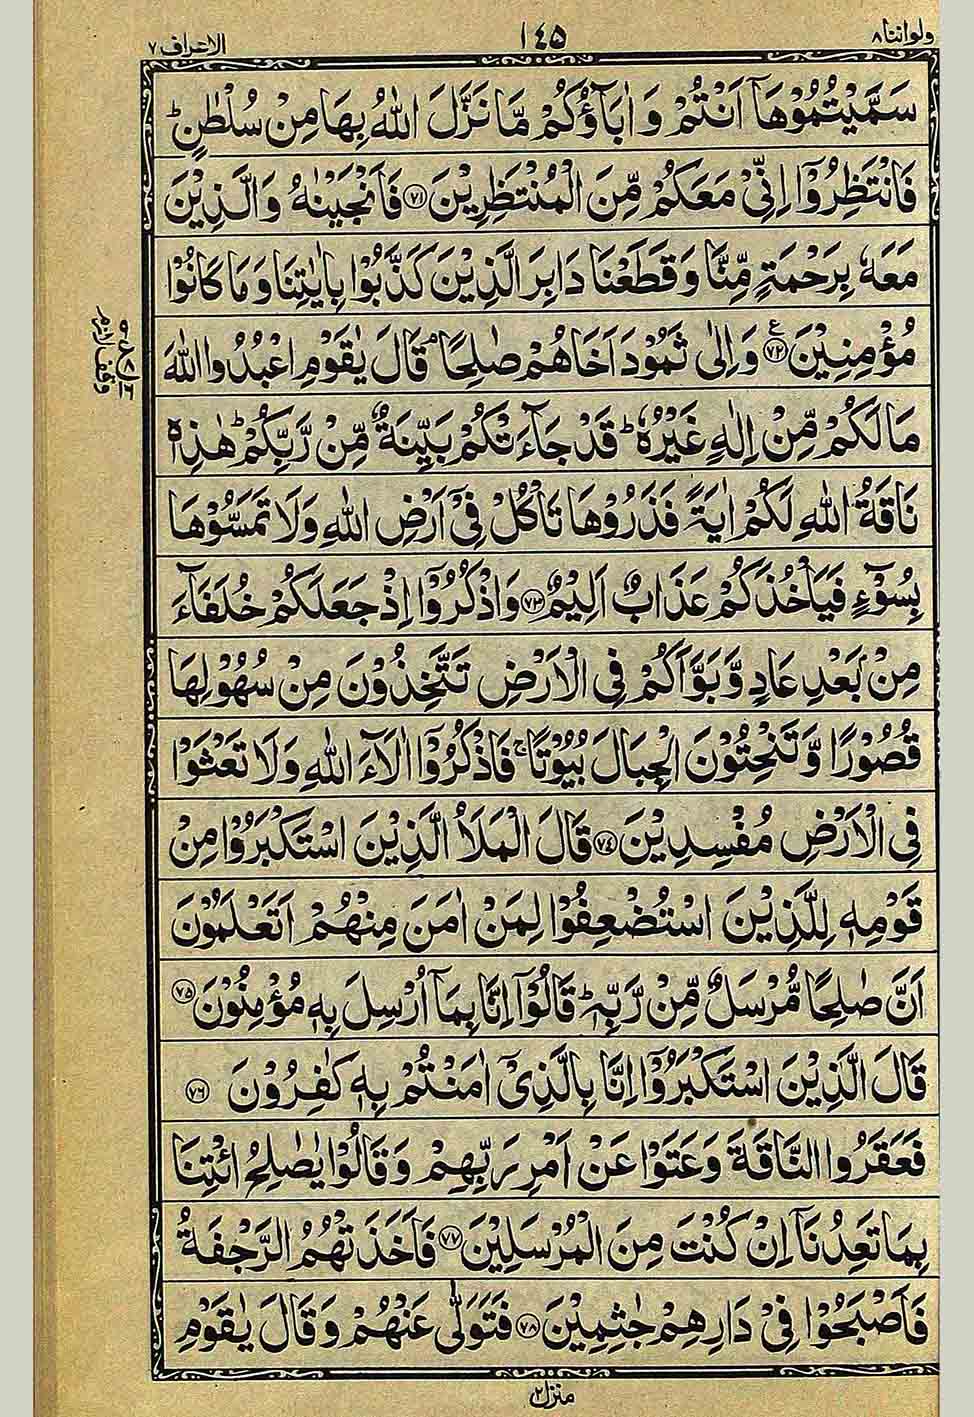 ولواننا ٨
١٤٥
الاعراف ٧
سَمَّيْتُمُوْهَاۤ اَنْتُمْ وَ اٰبَآؤُكُمْ مَّا نَزَّلَ اللّٰهُ بِهَا مِنْ سُلْطٰنٍ ؕ
فَانْتَظِرُوْۤا اِنِّيْ مَعَكُمْ مِّنَ الْمُنْتَظِرِيْنَ ﴿٧١﴾ فَاَنْجَيْنٰهُ وَالَّذِيْنَ
مَعَهٗ بِرَحْمَةٍ مِّنَّا وَقَطَعْنَا دَابِرَ الَّذِيْنَ كَذَّبُوْا بِاٰيٰتِنَا وَمَا كَانُوْا
مُؤْمِنِيْنَ ﴿٧٢﴾ ع وَاِلٰى ثَمُوْدَ اَخَاهُمْ صٰلِحًا ۘ قَالَ يٰقَوْمِ اعْبُدُوا اللّٰهَ
مَا لَكُمْ مِّنْ اِلٰهٍ غَيْرُهٗ ؕ قَدْ جَآءَتْكُمْ بَيِّنَةٌ مِّنْ رَّبِّكُمْ ؕ هٰذِهٖ
نَاقَةُ اللّٰهِ لَكُمْ اٰيَةً فَذَرُوْهَا تَاْكُلْ فِيْۤ اَرْضِ اللّٰهِ وَلَا تَمَسُّوْهَا
بِسُوْٓءٍ فَيَاْخُذَكُمْ عَذَابٌ اَلِيْمٌ ﴿٧٣﴾ وَاذْكُرُوْۤا اِذْ جَعَلَكُمْ خُلَفَآءَ
مِنْۢ بَعْدِ عَادٍ وَّبَوَّاَكُمْ فِي الْاَرْضِ تَتَّخِذُوْنَ مِنْ سُهُوْلِهَا
قُصُوْرًا وَّتَنْحِتُوْنَ الْجِبَالَ بُيُوْتًا ۚ فَاذْكُرُوْۤا اٰلَآءَ اللّٰهِ وَلَا تَعْثَوْا
فِي الْاَرْضِ مُفْسِدِيْنَ ﴿٧٤﴾ قَالَ الْمَلَاُ الَّذِيْنَ اسْتَكْبَرُوْا مِنْ
قَوْمِهٖ لِلَّذِيْنَ اسْتُضْعِفُوْا لِمَنْ اٰمَنَ مِنْهُمْ اَتَعْلَمُوْنَ
اَنَّ صٰلِحًا مُّرْسَلٌ مِّنْ رَّبِّهٖ ؕ قَالُوْۤا اِنَّا بِمَاۤ اُرْسِلَ بِهٖ مُؤْمِنُوْنَ ﴿٧٥﴾
قَالَ الَّذِيْنَ اسْتَكْبَرُوْۤا اِنَّا بِالَّذِيْۤ اٰمَنْتُمْ بِهٖ كٰفِرُوْنَ ﴿٧٦﴾
فَعَقَرُوا النَّاقَةَ وَعَتَوْا عَنْ اَمْرِ رَبِّهِمْ وَقَالُوْا يٰصٰلِحُ ائْتِنَا
بِمَا تَعِدُنَاۤ اِنْ كُنْتَ مِنَ الْمُرْسَلِيْنَ ﴿٧٧﴾ فَاَخَذَتْهُمُ الرَّجْفَةُ
فَاَصْبَحُوْا فِيْ دَارِهِمْ جٰثِمِيْنَ ﴿٧٨﴾ فَتَوَلّٰى عَنْهُمْ وَقَالَ يٰقَوْمِ
وقف لازم
منزل ٢